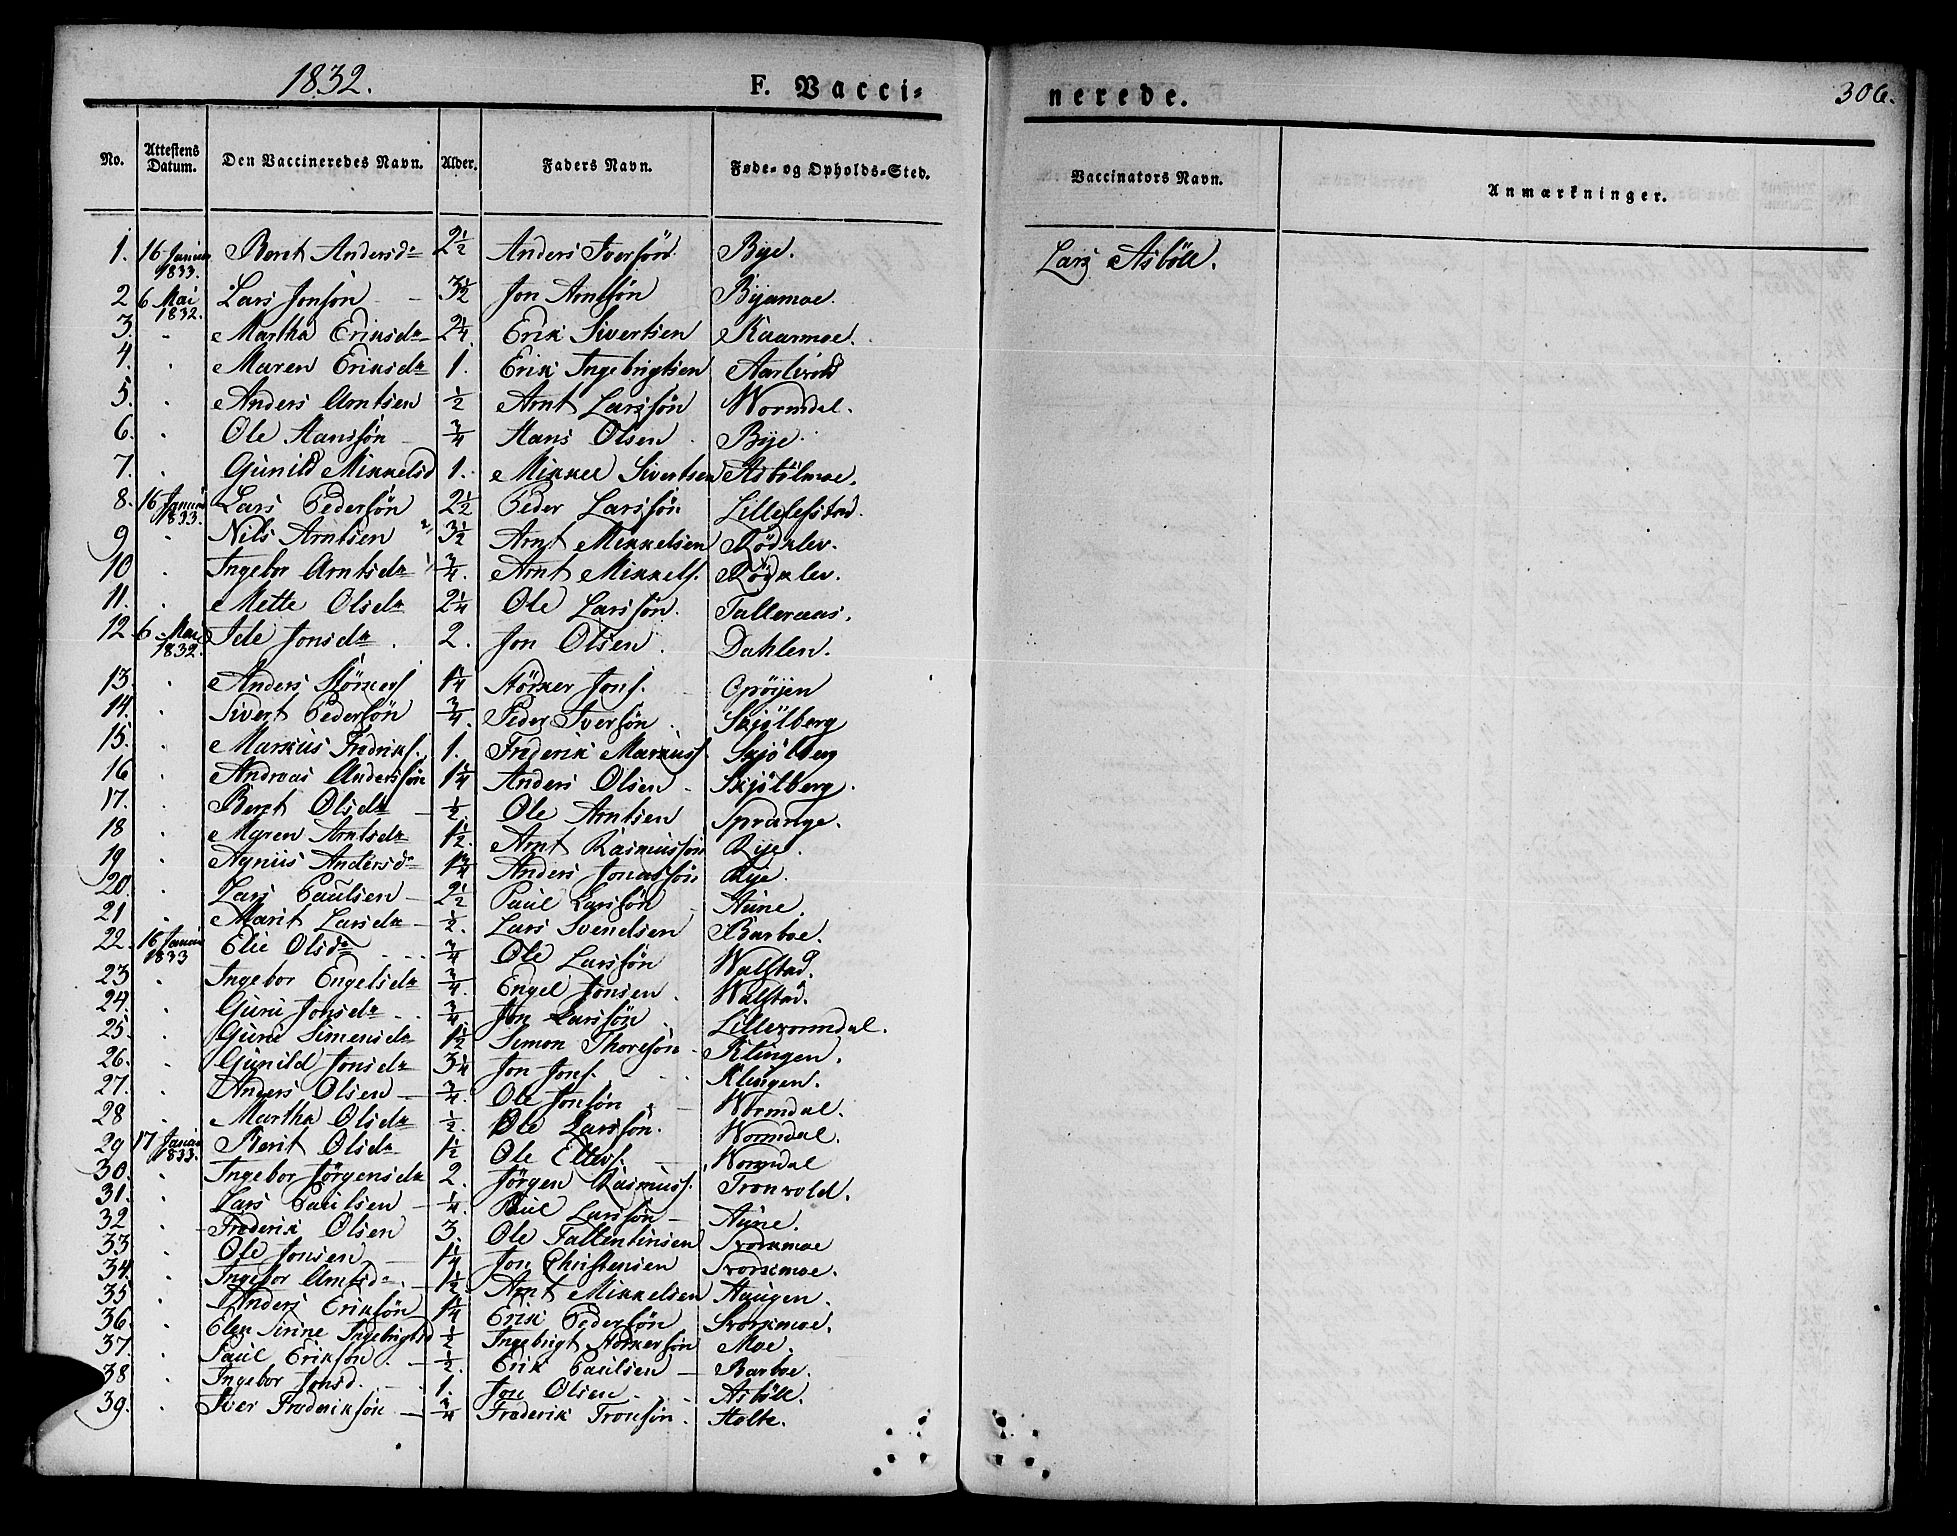 1832.
F. Vacci-
nerede.
306.
No. Attestens Datum. Den Vaccineredes Navn. Alder. Faders Navn. Føde- og Opholds-Sted. Vaccinators Navn. Anmærkninger.
1. 16 Januar 1833. Beret Andersdr 2 1/2 Anders Iversön Bye. Lars Asböll.
2 6 Mai 1832. Lars Jonsön 3 1/2 Jon Arntsön Byamoe.
3. Martha Eriksdr 2 1/4. Erik Sivertsen Kaarmoe.
4. Maren Eriksdr 1. Erik Ingebrigtsen
5. Anders Arntsen 1/2 Arnt Larssön Wormdal.
6. Ole Hanssön 3/4 Hans Olsen Bye.
7. Gunild Mikkelsd 1. Mikkel Sivertsen Asbölmoe.
8. 16 Januar 1833. Lars Pedersön 2 1/2 Peder Larssön
9 Nils Arntsen 3 1/2 Arnt Mikkelsen Rödklev.
10 Ingebor Arntsdr 3/4. Arnt Mikkels. Rödklev.
11. Mette Olsdr 2 1/4 Ole Larssön. Talleraas.
12 6 Mai 1832. Ide Jonsdr. 2. Jon Olsen. Dahlen.
13. Anders Störkers 1 1/4 Störker Jons.
14. Sivert Pedersön 3/4. Peder Iversön Skjölberg
15. Markus Fredriks. 1. Frederik Markuss. Skjölberg
16 Andreas Anderssön 1 1/4 Anders Olsen Skjölberg.
17. Beret Olsdr 1/2 Ole Arntsen Sprange.
18 Maren Arntsdr 1 1/2. Arnt Rasmussön Rye.
19 Agniis Andersdr 1 3/4 Anders Jonassön Rye.
20. Lars Paulsen 2 1/2 Paul Larssön Aune.
21 Marit Larsdr 1/2. Lars Svendsen Barboe.
22. 16 Januar 1833 Elie Olsdr 3/4 Ole Larssön Walstad.
23 Ingebor Engelsdr 3/4. Engel Jonsen. Walstad.
24. Guru Jonsdr 3/4 Jon Larssön Lillevormdal.
25. Guru Simensdr 1 1/2 Simon Thoresön Klingen.
26. Gunild Jonsdr 3 1/4 Jon Jons. Klingen.
27. Anders Olsen 3/4. Ole Jonsön Wormdal.
28 Martha Olsdr 1/2. Ole Larssön. Wormdal.
29 17 Januar 1833. Berit Olsdr 1 1/2 Ole Ellevs. Wormdal
30. Ingebor Jörgensdr 2. Jörgen Rasmuss. Tronvold.
31. Lars Paulsen 1/4. Paul Larssön Aune.
32 Frederik Olsen 3. Ole Fallentinsen Svorkmoe
33 Ole Jonsen 1 1/4 Jon Christensen Svorkmoe.
34. Ingebor Arntsdr. 1 1/2. Arnt Mikkelsen Haugen.
35 Anders Eriksön 1 1/4 Erik Pedersön Svorkmoe.
36. Elen Sirine Ingebrigtsd 1/2 Ingebrigt Störkersön Moe.
37. Paul Eriksön. 1/2. Erik Paulsen Barboe.
38 Ingebor Jonsd. 1. Jon Olsen Asböll.
39. Iver Frederiksön 3/4 Frederik Tronsön. Holte.